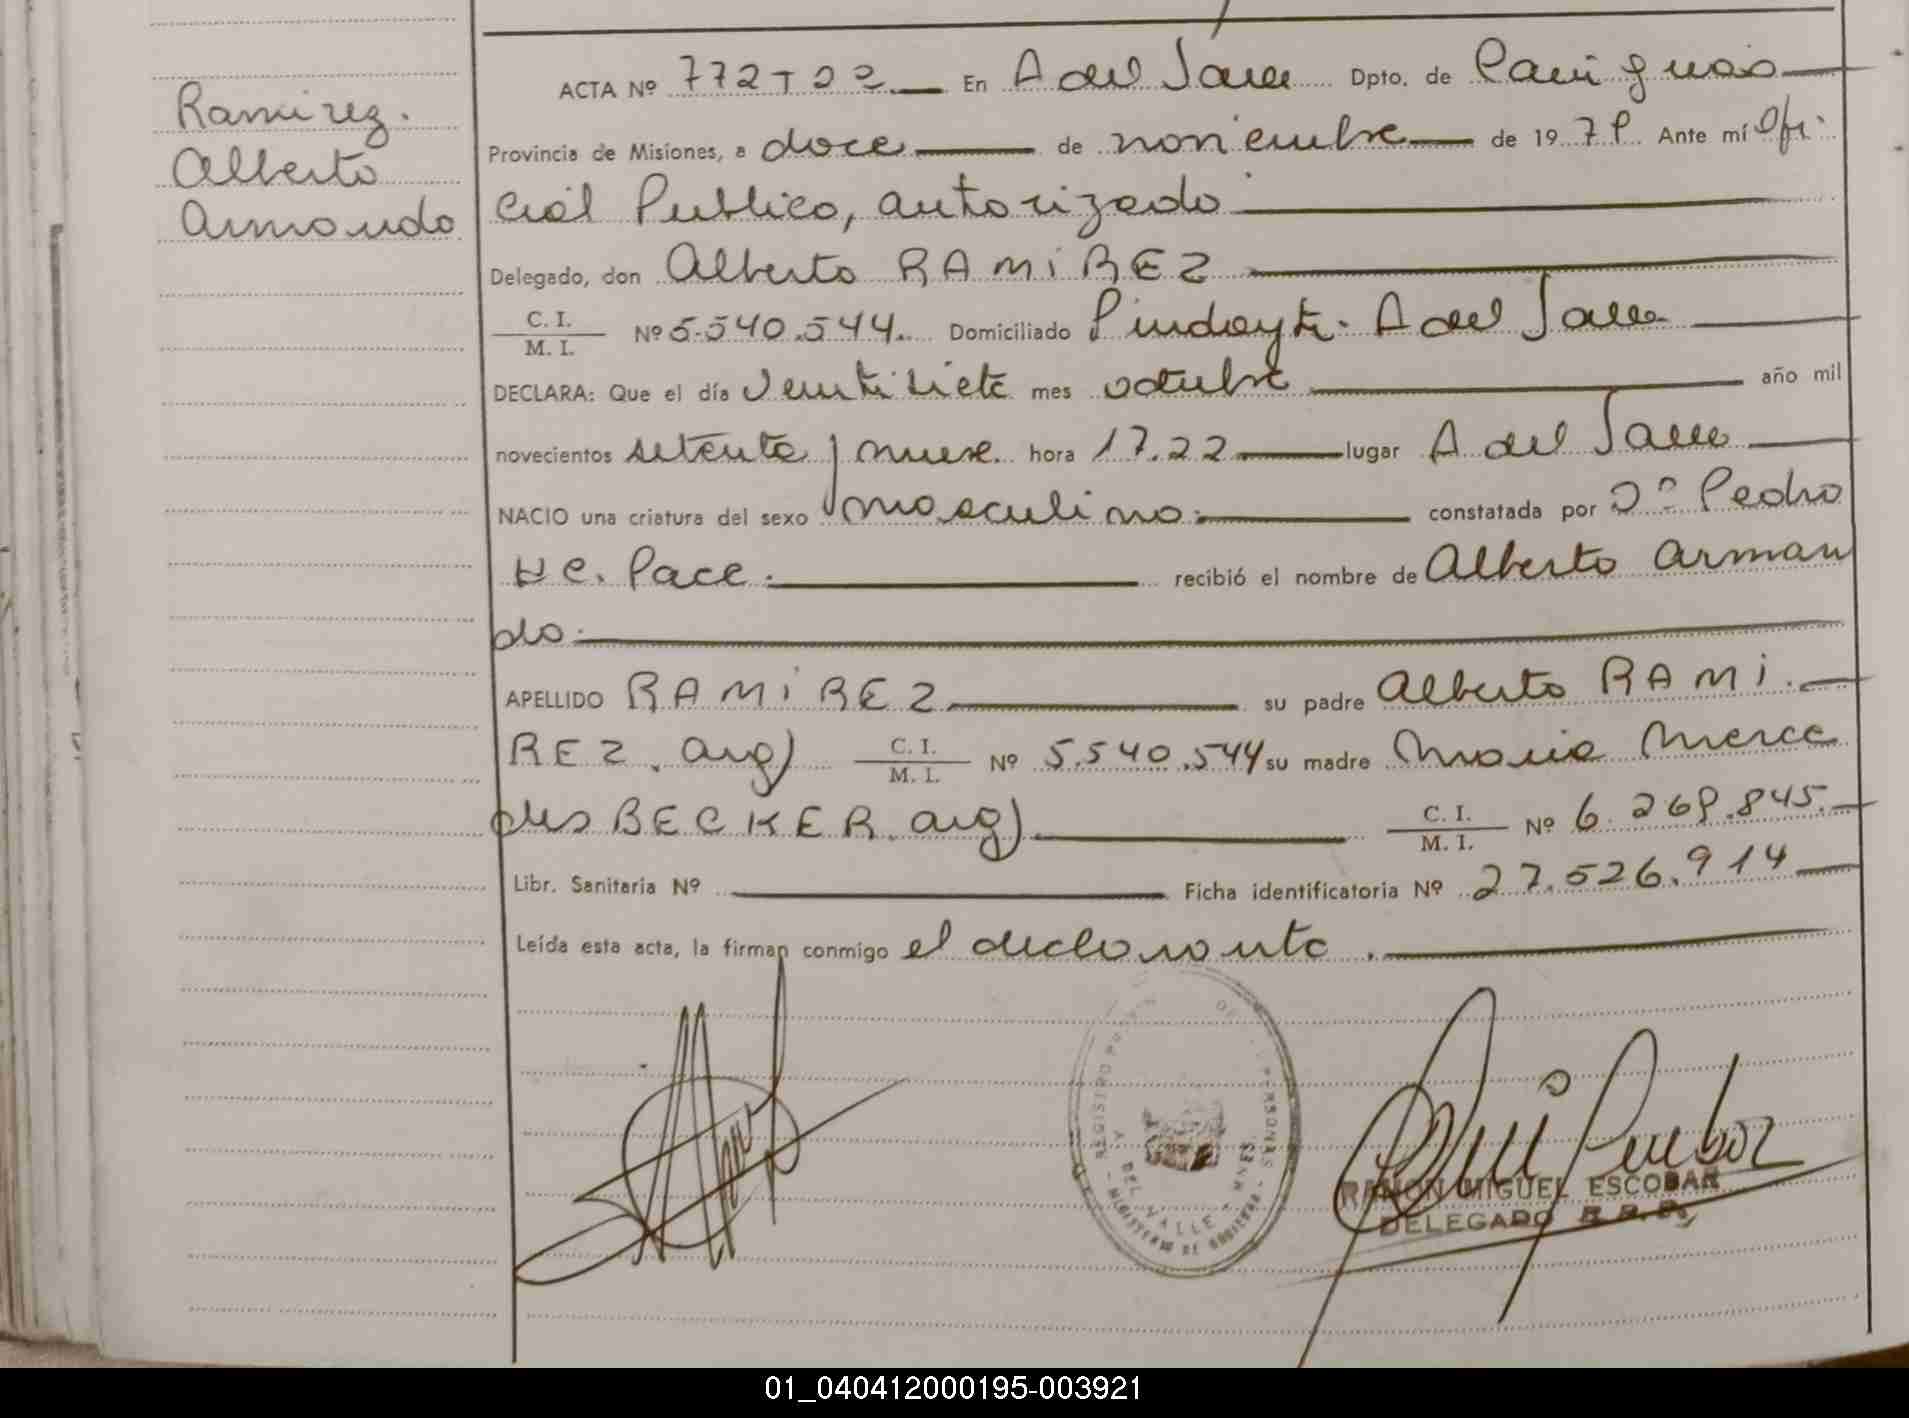 Ramirez.
Alberto
Armando
ACTA Nº 772 T 2º En A del Valle Dpto. de Cainguas
Provincia de Misiones, a doce de noviembre de 1979 Ante mí Ofi
cial Publico, autorizado
Delegado, don Alberto RAMIREZ
C. I.
M. I. Nº 5.540.544. Domiciliado Pindayti. A del Valle
DECLARA: Que el día Veintisiete mes octubre año mil
novecientos setenta y nueve hora 17.22 lugar A del Valle
NACIO una criatura del sexo masculino. constatada por Dº Pedro
H C. Pace. recibió el nombre de Alberto Arman
do.
APELLIDO RAMIREZ su padre Alberto RAMI
REZ. arg) C. I.
M. I. Nº 5.540.544 su madre Maria Merce
des BECKER. arg) C. I.
M. I. Nº 6.269.845.
Libr. Sanitaria Nº Ficha identificatoria Nº 27.526.914
Leída esta acta, la firman conmigo el declarante.
REGISTRO DE PERSONAS
DEL VALLE - MNES.
MINISTERIO DE GOBIERNO
RAMON MIGUEL ESCOBAR
DELEGADO R. P.
01_040412000195-003921